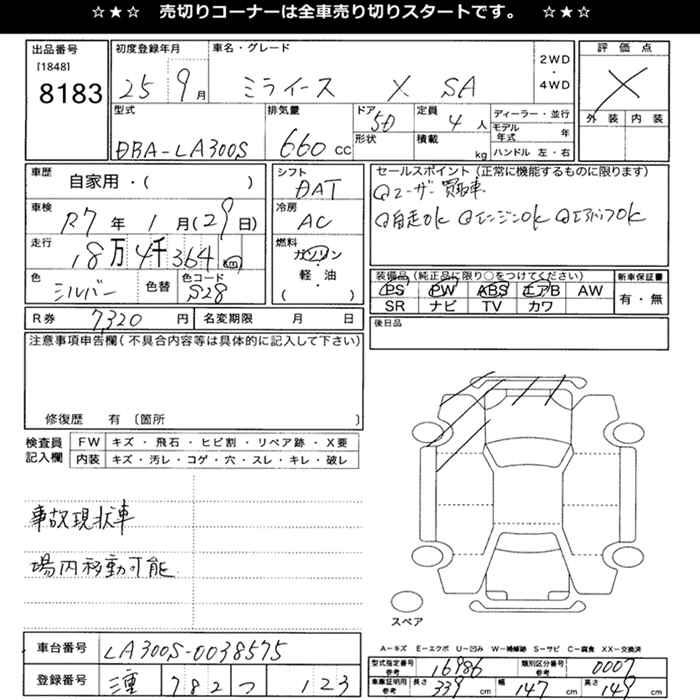 ☆★☆ 売切りコーナーは全車売り切りスタートです。 ☆★☆
出品番号 初度登録年月 車名・グレード 2WD・4WD 評価点
[1848]
8183 25 9月 ミライース X SA X
型式 排気量 ドア 定員 ディーラー・並行 外装 内装
DBA-LA300S 660cc 5D 4人 モデル年式 年
形状 積載 kg ハンドル 左・右
車歴 自家用・( ) シフト DAT セールスポイント(正常に機能するものに限ります)
車検 R7年1月(29日) 冷房 AC ◎ユーザー買取車
◎自走OK ◎エンジンOK ◎エアバックOK
走行 18万4千364km 燃料 ガソリン・軽・油( )
色 シルバー 色替 色コード S28
装備品(純正品に限り○をつけてください) 新車保証書
PS PW ABS エアB AW 有・無
SR ナビ TV カワ
R券 7,320円 名変期限 月 日 後日品
注意事項申告欄(不具合内容等は具体的に記入して下さい)
修復歴 有 〔箇所 〕
検査員記入欄 FW キズ・飛石・ヒビ割・リペア跡・X要
内装 キズ・汚レ・コゲ・穴・スレ・キレ・破レ
事故現状車
場内移動可能
スペア
車台番号 LA300S-0038575
A-キズ E-エクボ U-凹み W-補修跡 S-サビ C-腐食 XX-交換済
登録番号 三重 782 つ 123
型式指定番号 参考 16986 類別区分番号 参考 0007
車庫証明用 参考 長さ 339cm 幅 147cm 高さ 149cm